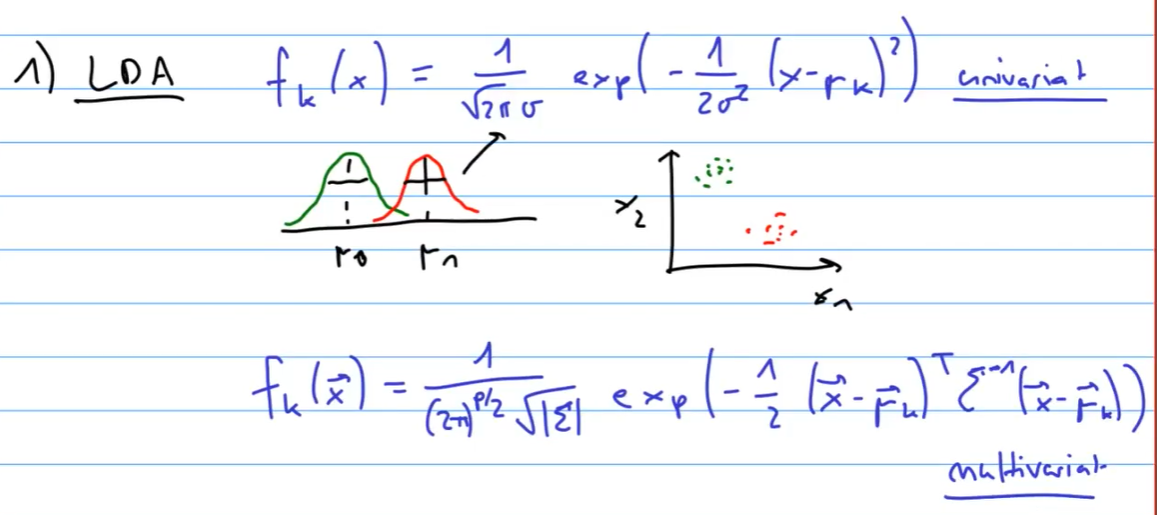 1) LDA f_k(x) = 1/(√2π σ) exp(-1/(2σ²) (x-μ_k)²) univariat
μ_0 μ_1
x_2
x_1
f_k(x⃗) = 1/((2π)^{p/2} √|Σ|) exp(-1/2 (x⃗-μ⃗_k)^T Σ^{-1} (x⃗-μ⃗_k))
multivariat